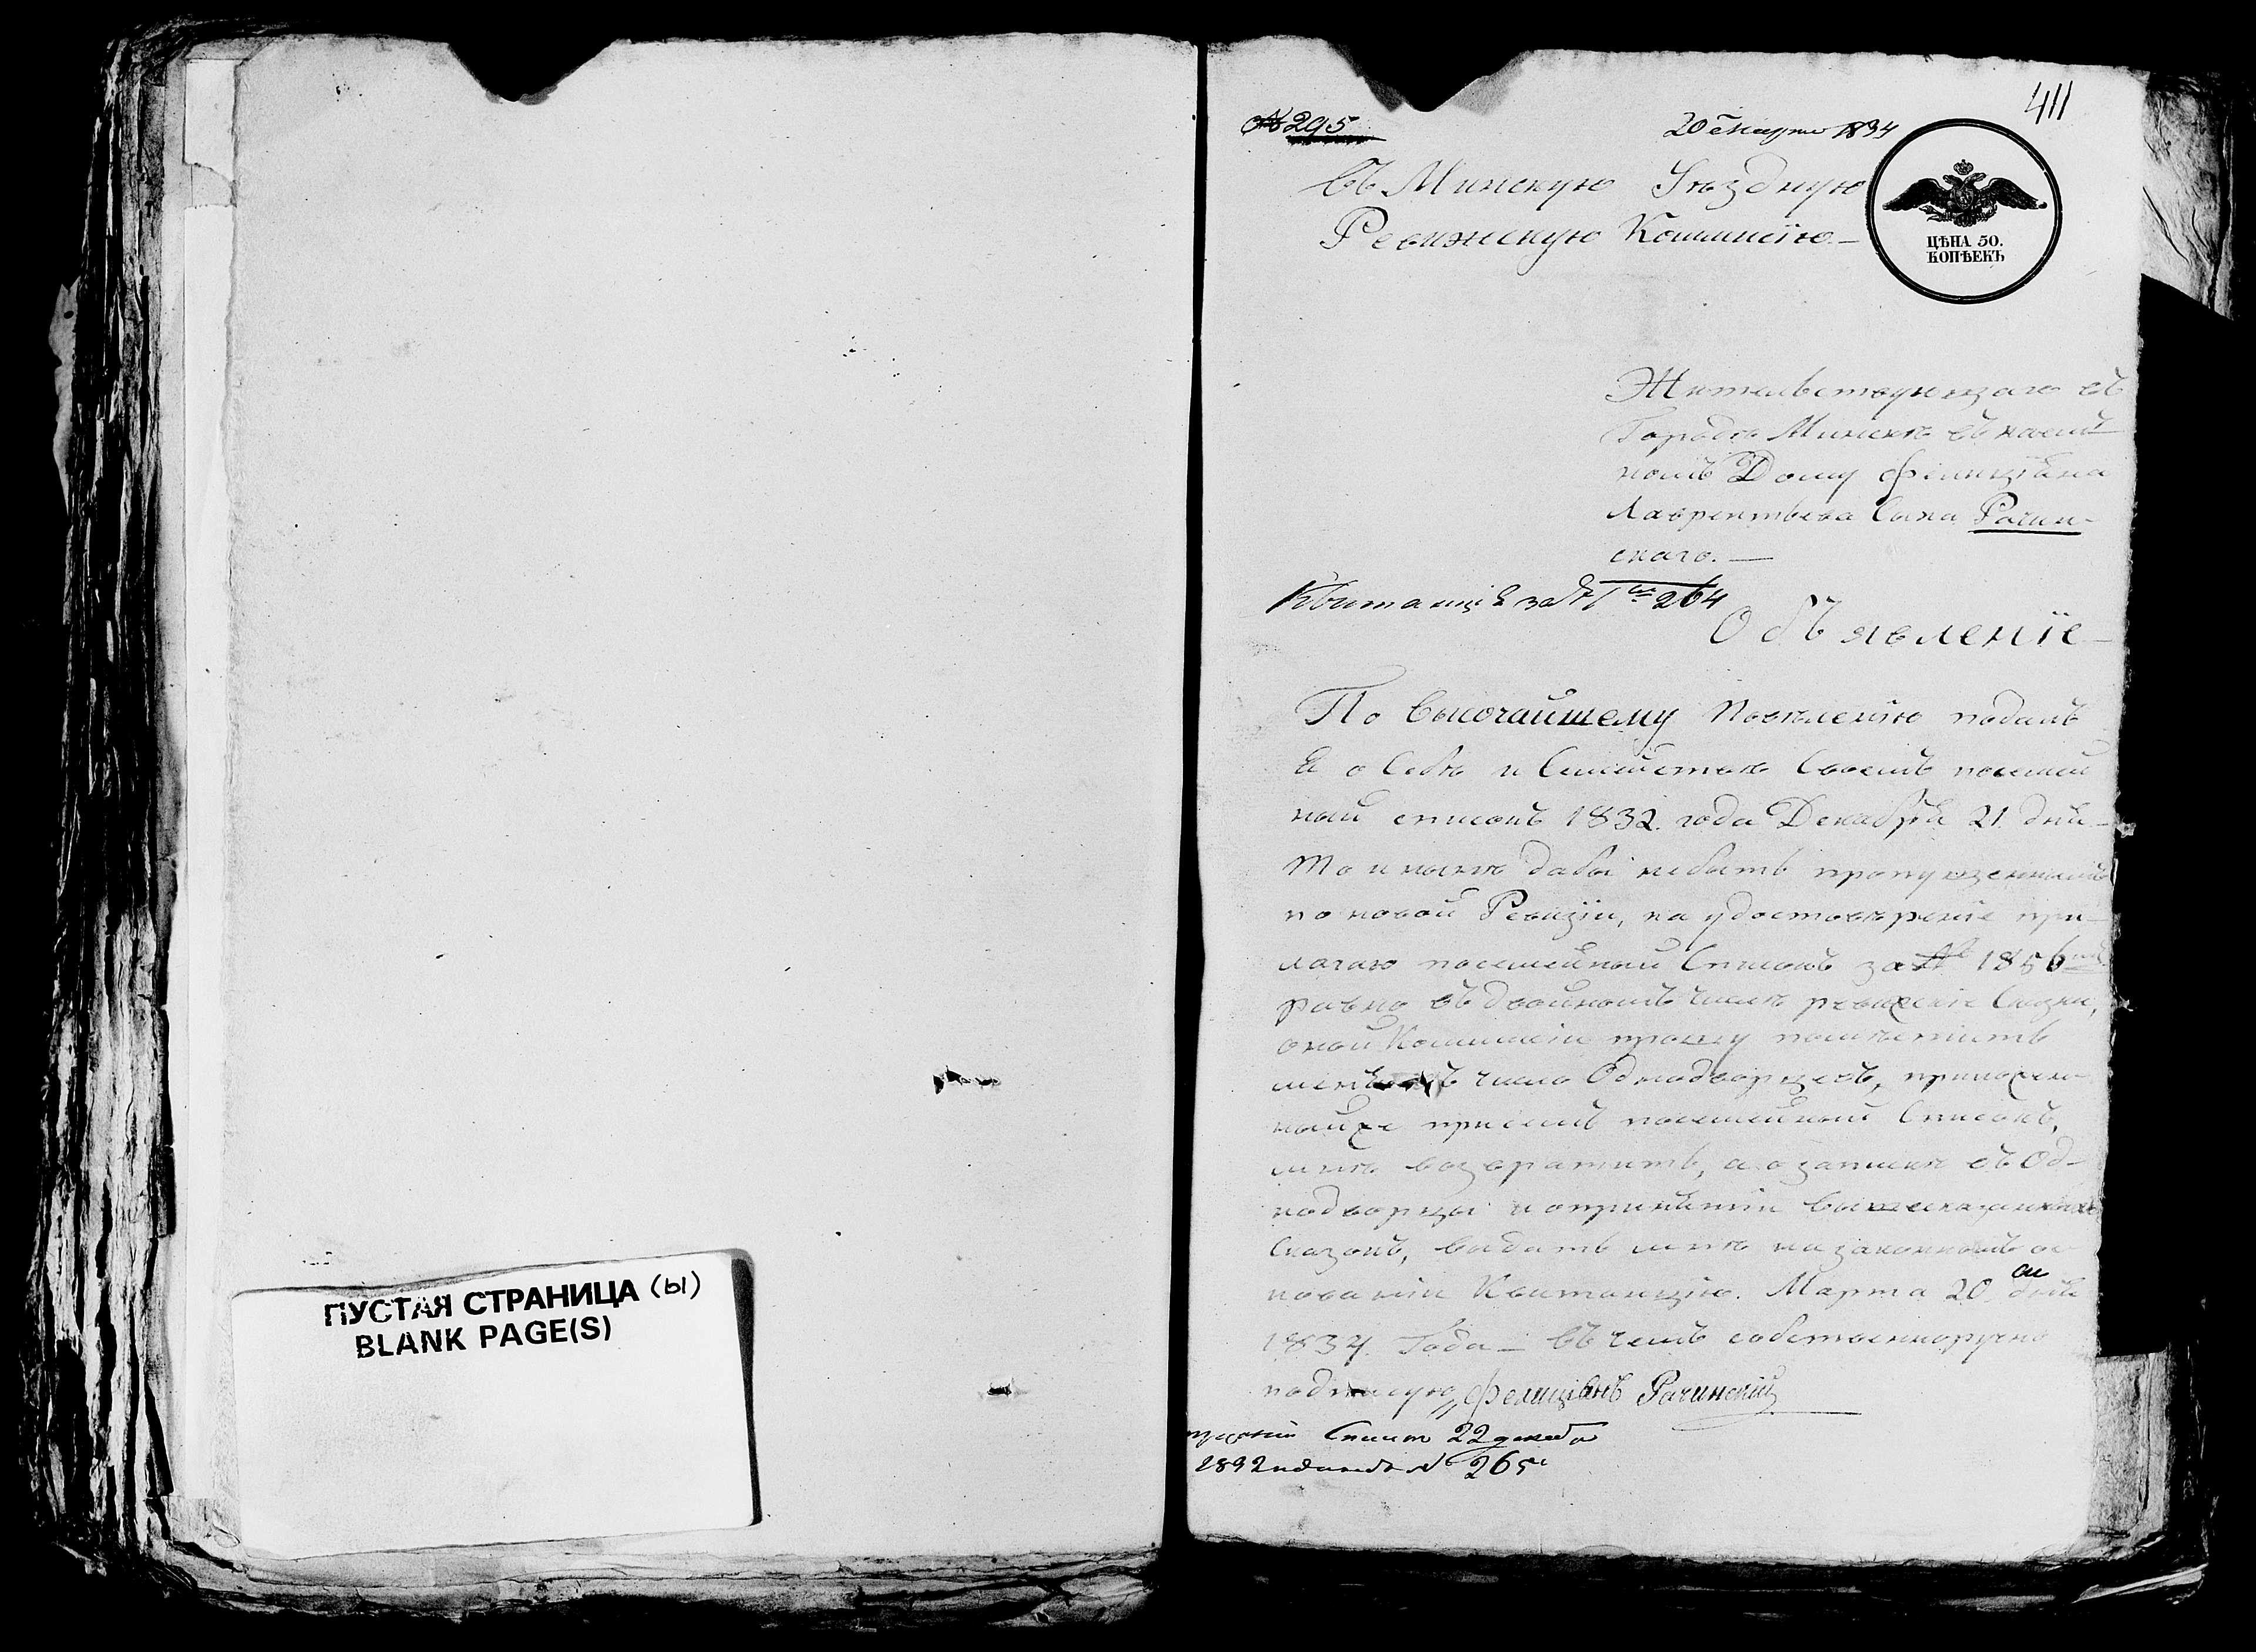 ПУСТАЯ СТРАНИЦА (ы)
BLANK PAGE(S)
411
№ 295
20 марта 1834
Въ Минскую Уѣздную
Ревижскую Коммисїю.—
ЦѢНА 50.
КОПѢЕКЪ
Жительствующаго въ
Городѣ Минскѣ въ наем
номъ Дому Фелицїяна
Лаврентьева Сына Рачин-
скаго.—
Квитанція за № 264
Объявленїе—
По Высочайшему Повелѣнїю подалъ
Я о Себѣ и Семействѣ Своемъ посемей
ный списокъ 1832. года Декабря 21. дня—
То и нынѣ дабы небыть пропущеннымъ
по новой Ревизїи, на удостовѣренїе при-
лагаю посемейный Списокъ за № 1856
равно въ двойномъ числѣ ревизскїе Сказки,
оной Коммисїи прошу
число Однодворцовъ, приложен
ныйже присемъ посемейный Списокъ,
мнѣ возвратить, а о запискѣ въ Од-
нодворцы и опринятїи вышесказанныхъ
Сказокъ, выдать мнѣ на законномъ ос-
нованїи Квитанцїю. Марта 20. дня
1834. Года— въ чемъ собственноручно
подписуюсь Фелиціянъ Рачинскій
Списокъ 22 декаб
1832 № 265